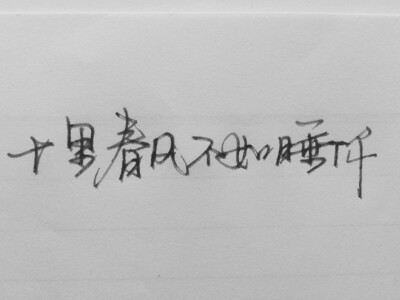 十里春风不如睡你